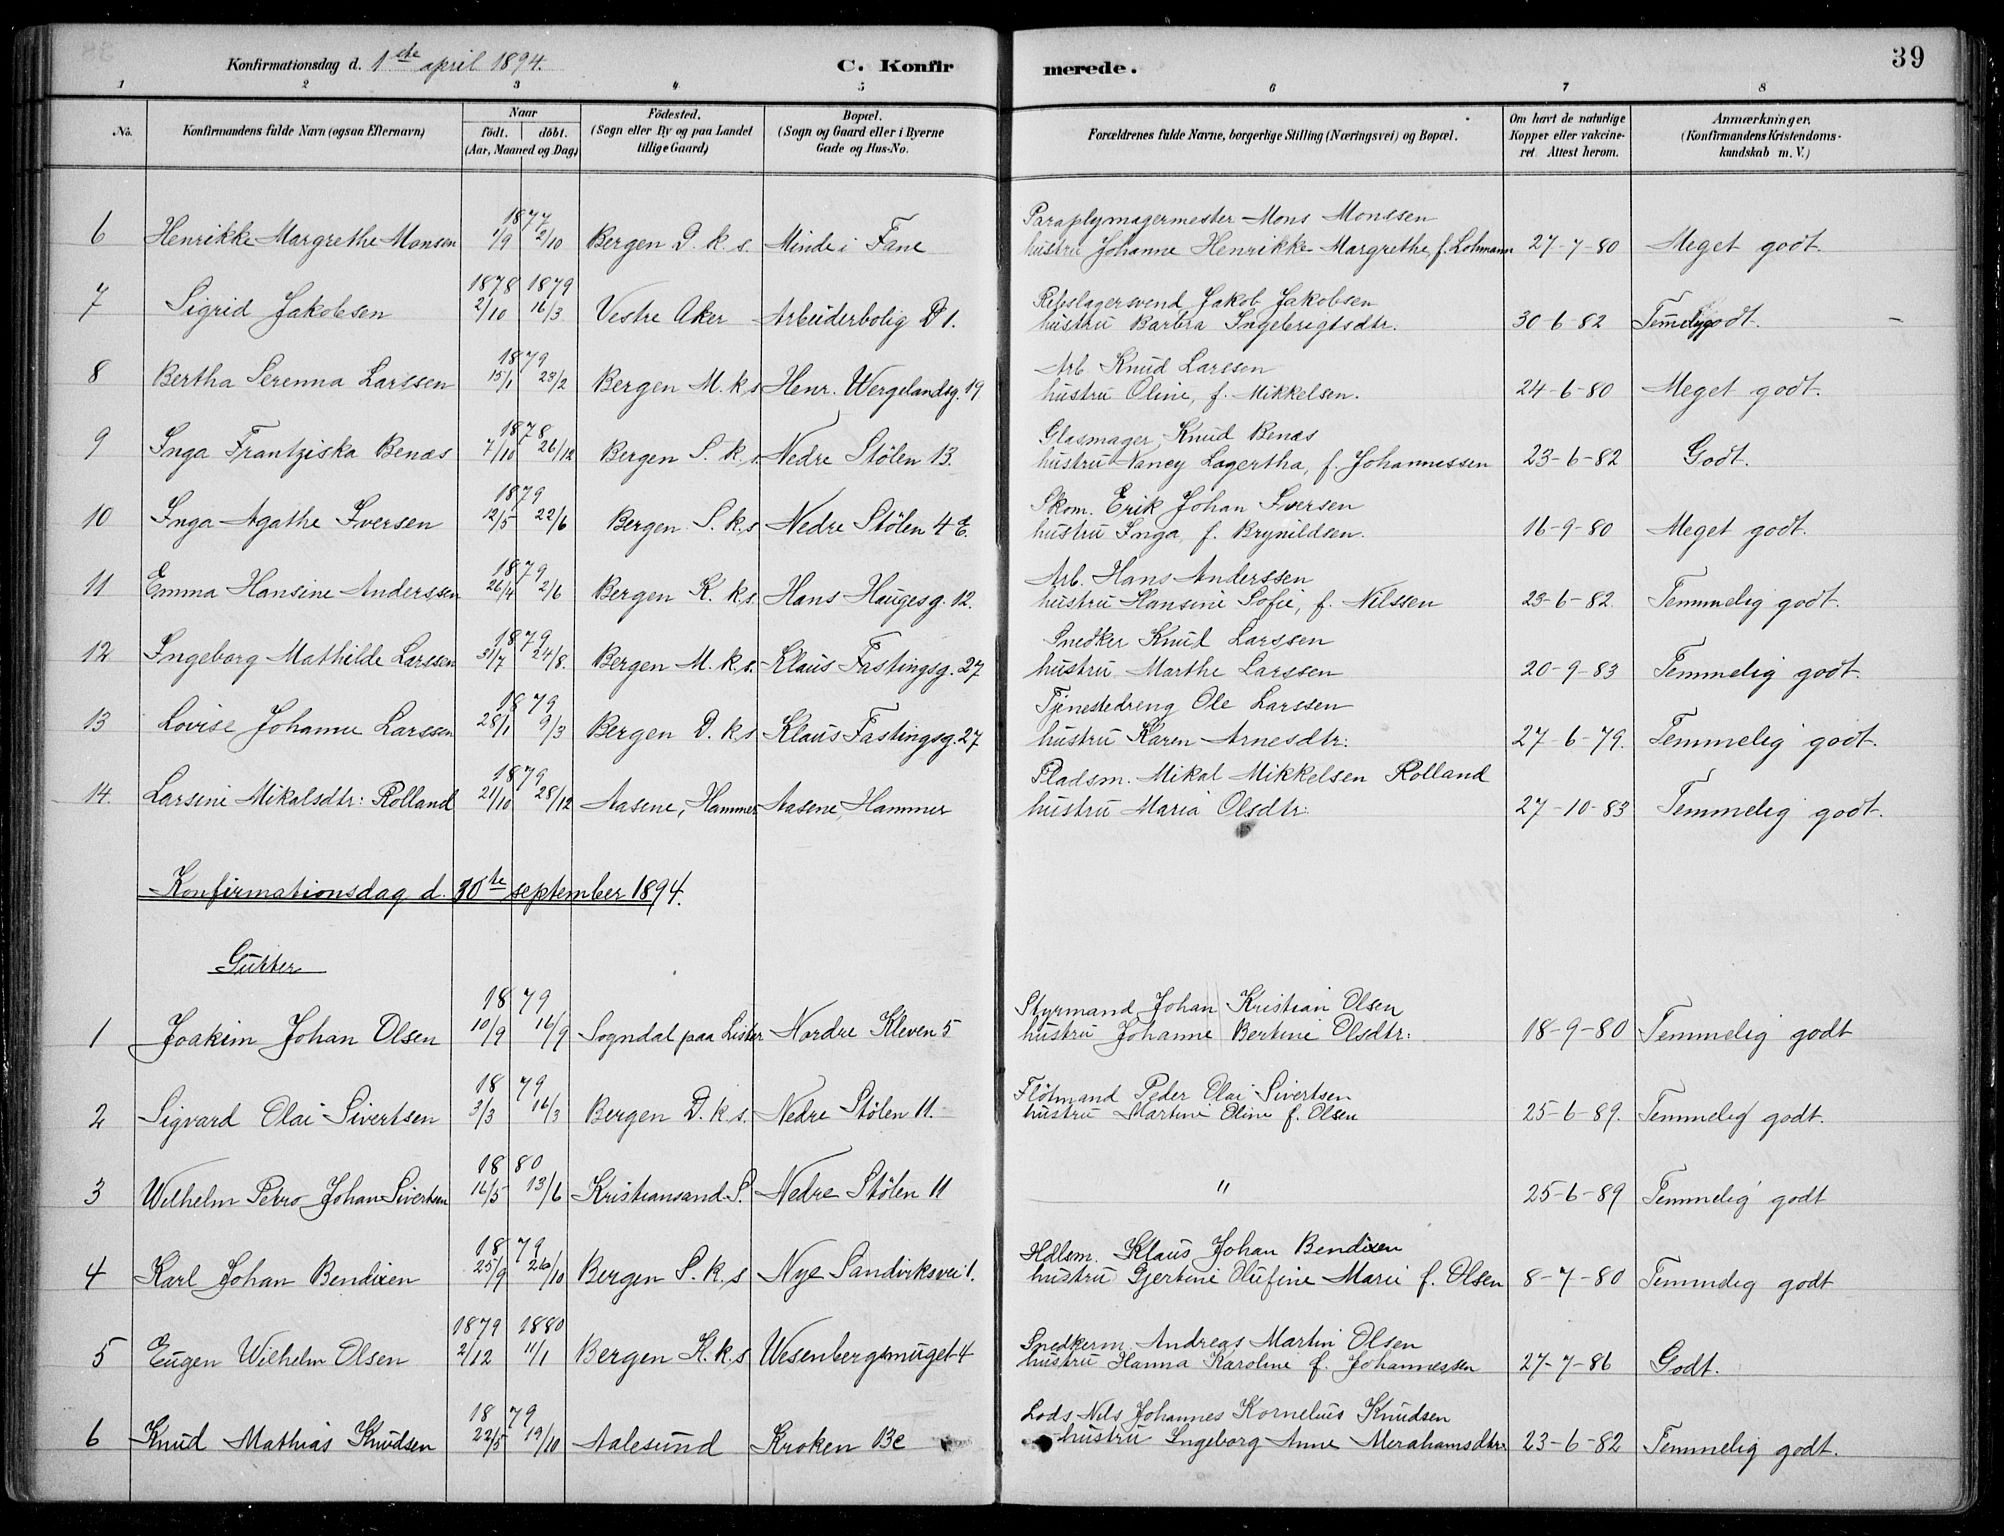 Konfirmationsdag d. 1ste april 1894.
C. Konfirmerede.
39
1 2 3 4 5 6 7 8
No. Konfirmandens fulde Navn (ogsaa Efternavn) Naar födt. döbt. (Aar, Maaned og Dag) Födested. (Sogn eller By og paa Landet tillige Gaard) Bopæl. (Sogn og Gaard eller i Byerne Gade og Hus-No. Forældrenes fulde Navne, borgerlige Stilling (Næringsvei) og Bopæl. Om havt de naturlige Kopper eller vakcineret. Attest herom. Anmærkninger, (Konfirmandens Kristendomskundskab m. V.)
1877 Paraplymagermester Mons Monssen
6 Henrikke Margrethe Monsen 1/9 2/10 Bergen D. k. s. Minde i Fane hustru Johanne Henrikke Margrethe f. Lohmann 27-7-80 Meget godt.
1878 1879 Rebslagersvend Jakob Jakobsen
7 Sigrid Jakobsen 2/10 16/3 Vestre Aker Arbeiderbolig D 1. hustru Barbra Ingebrigtsdtr. 30-6-82 Temelig godt. –
1879 Arb. Knud Larssen
8 Bertha Serenna Larssen 15/1 23/2 Bergen M. k. s Henr. Wergelandsg. 19 hustru Oline, f. Mikkelsen. 24-6-80 Meget godt.
1878 Glasmager Knud Benæs
9 Inga Frantziska Benæs 7/10 26/12 Bergen S. k. s. Nedre Stölen 13. hustru Nancy Lagertha, f. Johannessen 23-6-82 Godt.
1879 Skom. Erik Johan Iversen
10 Inga Agathe Iversen 12/5 22/6 Bergen S. k. s Nedre Stölen 4 E. hustru Inga, f. Brynildsen. 16-9-80 Meget godt.
1879 Arb. Hans Anderssen
11 Emma Hansine Anderssen 26/4 2/6 Bergen K. k. s. Hans Haugesg. 12. hustru Hansine Sofie, f. Nilssen 23-6-82. Temmelig godt.
1879 Snedker Knud Larssen
12 Ingeborg Mathilde Larssen 31/7 24/8. Bergen M. k. s. Klaus Fastingsg. 27 hustru Marthe Larssen 20-9-83 Temmelig godt.
1879 Tjenestedreng Ole Larssen
13 Lovise Johanne Larssen 28/1 9/3 Bergen D. k. s Klaus Fastingsg. 27 hustru Karen Arnesdtr: 27-6-79. Temmelig godt.
1879 Pladsm. Mikal Mikkelsen Rolland
14. Larsine Mikalsdtr: Rolland 21/10 28/12 Aasene, Hammer Aasene, Hammer hustru Maria Olsdtr: 27-10-83 Temmelig godt.
Konfirmationsdag d. 30te september 1894.
Gutter
1879 Styrmand Johan Kristian Olsen
1 Joakim Johan Olsen 10/9 16/9 Sogndal paa Lister Nordre Kleven 5 hustru Johanne Bertine Olsdtr: 18-9-80 Temmelig godt
1879 Flötmand Peder Olai Sivertsen
2 Sigvard Olai Sivertsen 3/3 16/3 Bergen D. k. s. Nedre Stölen 11. hustru Martine Oline f. Olsen 25-6-89. Temmelig godt.
1880
3 Wilhelm Petro Johan Sivertsen 16/5 13/6 Kristiansand S. Nedre Stölen 11 " 25-6-89 Temmelig godt
1879 Hdlsm. Klaus Johan Bendixen
4 Karl Johan Bendixen 25/9 26/10 Bergen S. k. s Nye Sandviksvei 1. hustru Gjertine Olufine Marie f. Olsen 8-7-80 Temmelig godt
1879 1880 Snedkerm. Andreas Martin Olsen
5 Eugen Wilhelm Olsen 2/12 11/1 Bergen K. k. s Wesenbergsmuget 4 hustru Hanna Karoline f. Johannessen 27-7-86 Godt.
1879 Lods Nils Johannes Kornelius Knudsen
6 Knud Mathias Knudsen 22/5 19/10 Aalesund Kroken 13c hustru Ingeborg Anne Abrahamsdtr: 23-6-82 Temmelig godt.